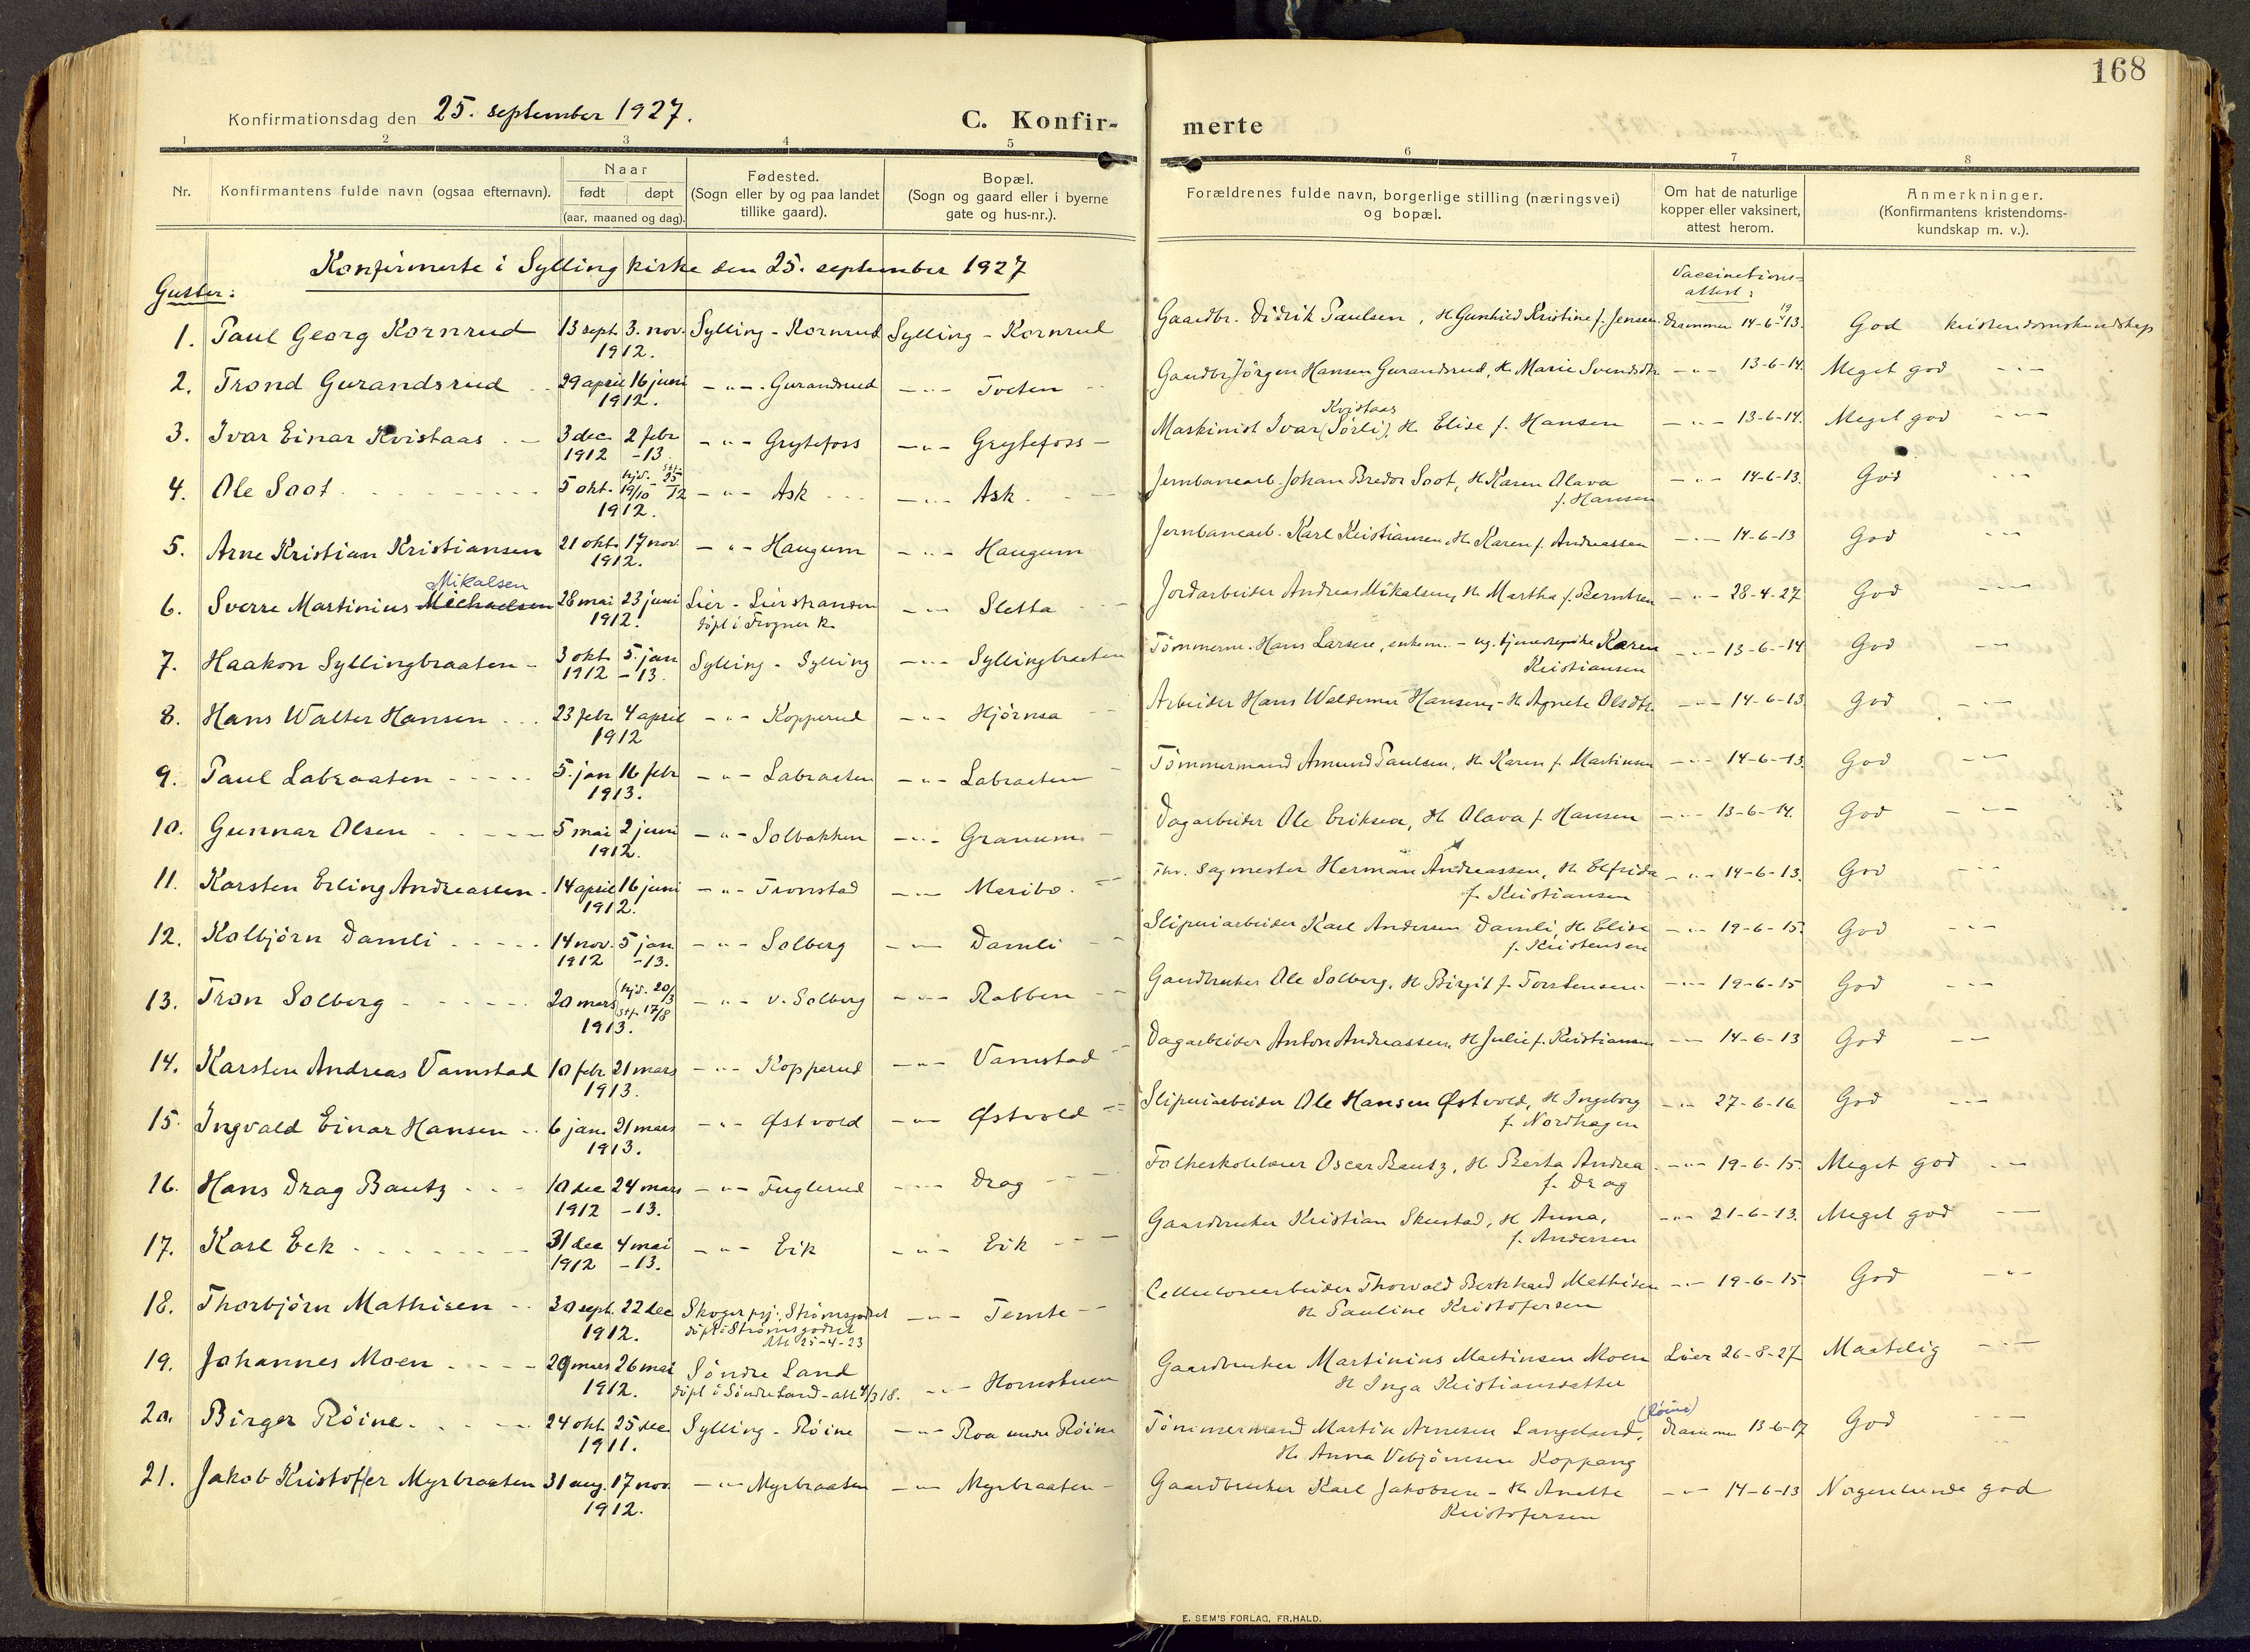 168
Konfirmationsdag den 25. september 1927.
C. Konfir-
merte
1 2 3 4 5 6 7 8
Nr.
Konfirmantens fulde navn (ogsaa efternavn).
Naar
født døpt
(aar, maaned og dag).
Fødested.
(Sogn eller by og paa landet
tillike gaard).
Bopæl.
(Sogn og gaard eller i byerne
gate og hus-nr.).
Forældrenes fulde navn, borgerlige stilling (næringsvei)
og bopæl.
Om hat de naturlige
kopper eller vaksinert,
attest herom.
Anmerkninger.
(Konfirmantens kristendoms-
kundskap m. v.).
Konfirmerte i Sylling kirke den 25. september 1927
Gutter:
Vaccinations-
attest:
1. Paul Georg Kornrud 13 sept. 3. nov. Sylling - Kornrud Sylling - Kornrud Gaardbr. Didrik Paulsen, H. Gunhild Kristine f. Jensen Drammen 14-6-1913. God kristendomskundskap
1912.
2. Trond Gurandsrud 29 april 16 juni - " - Gurandsrud - " - Tveten Gaardbr. Jörgen Hansen Gurandsrud, H. Marie Svendsdtr. - " - 13-6-14. Meget god - " -
1912.
3. Ivar Einar Kvistaas 3 dec 2 febr - " - Grytefoss - " - Grytefoss Maskinist Ivar (Sörli), H. Elise f. Hansen - " - 13-6-14. Meget god - " -
Kvistaas
1912 -13.
4. Ole Soot 5 okt. hjd. 19/10 st.f. 25/12 - " - Ask - " - Ask Jernbanearb. Johan Bredor Soot, H. Karen Olava - " - 14-6-13. God - " -
1912. f. Hansen
5. Arne Kristian Kristiansen 21 okt. 17 nov. - " - Haugum - " - Haugum Jernbanearb. Karl Kristiansen, H. Karen f. Andreassen - " - 14-6-13 God - " -
1912.
Mikalsen
6. Sverre Martinius Michaelsen 28 mai 23 juni Lier - Lierstranden - " - Sletta Jordarbeider Andreas Mikalsen, H. Martha f. Berntsen - " - 28-4-27 God - " -
1912. döpt i Frogner k.
7. Haakon Syllingbraaten 3 okt 5. jan Sylling - Sylling - " - Syllingbraaten Tömmerm. Hans Larsen, enkem. - ug. tjenestepike Karen - " - 13-6-14 God - " -
1912 -13. Kristiansen
8. Hans Walter Hansen 23 febr. 4 april - " - Kopperud - " - Hjörnsa Arbeider Hans Waldemar Hansen, - H. Agnete Olsdtr. - " - 14-6-13. God - " -
1912
9. Paul Labraaten 5. jan 16 febr - " - Labraaten - " - Labraaten Tömmermand Amund Paulsen, H. Karen f. Martinsen - " - 14-6-13. God - " -
1913.
10. Gunnar Olsen 5 mai 2 juni - " - Solbakken - " - Granum Dagarbeider Ole Eriksen, H. Olava f. Hansen - " - 13-6-14. God - " -
1912.
11. Karsten Erling Andreassen 14 april 16 juni - " - Tronstad - " - Maribo. Fhv. Sagmester Herman Andreassen, H. Elfrida - " - 14-6-13. God - " -
1912. f. Kristiansen
12. Kolbjörn Damli 14 nov. 5 jan - " - Solberg - " - Damli Sliperiarbeider Karl Andersen Damli, H. Elise - " - 19-6-15. God - " -
1912 -13. f. Kristensen
13. Tron Solberg 20 mars hjd. 20/3 st.f. 17/8 - " - v. Solberg - " - Rabben Gaardbruker Ole Solberg, H. Birgit f. Torstensen - " - 19-6-15 God - " -
1913.
14. Karsten Andreas Vamstad 10 febr 21 mars - " - Kopperud - " - Vamstad Dagarbeider Anton Andreassen, H. Julie f. Kristiansen - " - 14-6-13 God - " -
1913.
15. Ingvald Einar Hansen 6 jan. 21 mars - " - Østvold - " - Østvold Sliperiarbeider Ole Hansen Østvold, H. Ingeborg - " - 27-6-16 God - " -
1913. f. Nordhagen
16. Hans Drag Bautz 10 dec 24 mars - " - Fuglerud - " - Drag Folkeskolelærer Oscar Bautz, H. Berta Andrea - " - 19-6-15. Meget god - " -
1912 -13. f. Drag
17. Karl Eek 31 dec 4 mai - " - Eik - " - Eik Gaardbruker Kristian Skustad, H. Anna, - " - 21-6-13. Meget god - " -
1912 -13. f. Andersen
18. Thorbjörn Mathisen 30 sept. 22 dec Skoger prj: Strömsgodset - " - Temte Cellulosearbeider Thorvald Bernhard Mathisen - " - 19-6-15 God - " -
1912. döpt i Strömsgodset H. Pauline Kristofersen
Att 25-4-23
19. Johannes Moen 29 mars 26 mai Söndre Land - " - Hornstuen Gaardbruker Martinius Martinsen Moen Lier 26-8-27 Maatelig - " -
1912. döpt i Söndre Land - att 4/3 18. H. Inga Kristiansdatter
20. Birger Röine 24 okt. 25 dec. Sylling - Röine - " - Roa under Röine Tömmermand Martin Arnesen Langelund, (Röine) Drammen 13-6-17 God - " -
1911. H. Anna Vebjörnsen Koppang
21. Jakob Kristoffer Myrbraaten 31 aug. 17 nov. - " - Myrbraaten - " - Myrbraaten Gaardbruker Karl Jakobsen - H. Anette - " - 14-6-13 Nogenlunde god
1912. Kristofersen
E. SEM'S FORLAG, FR.HALD.